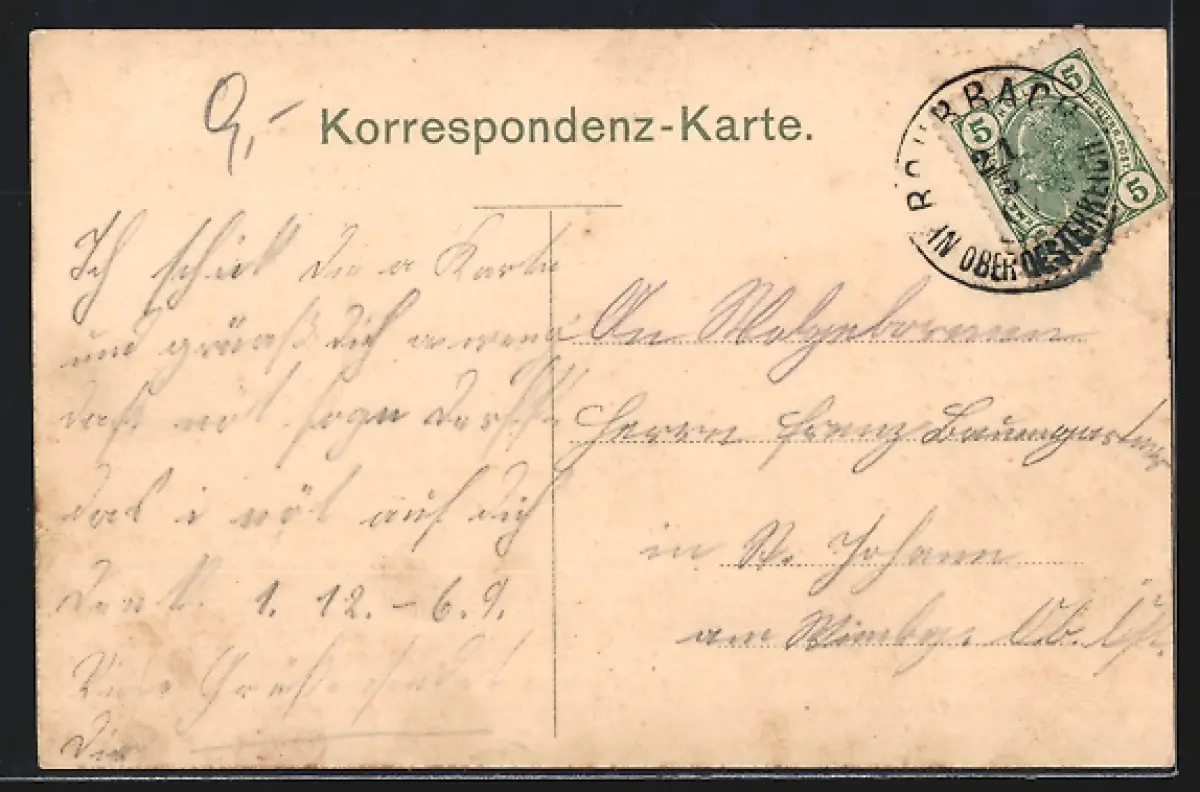 9,-
Korrespondenz-Karte.
ROHRBACH
IN OBEROESTERREICH
21
5
5
5
Ich schick Dir a Karte
und grüaß dich a weng
daß nöt sogn derfst
das i nöt auf dich
denk. 1. 12. - 6. 9.
Viele Grüße sendet
Dir
An Wolgebornen
Herrn Franz Baumgartner
in St. Johann
am Wimbg. Ob. Öst.